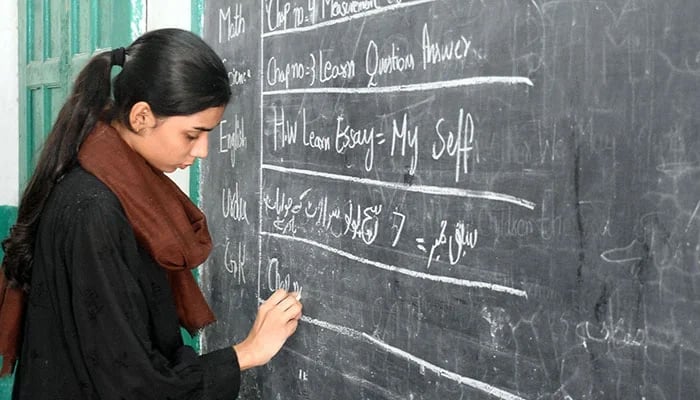 Math Chap no=4 Measurement
Science Chap no=3 Learn Question Answer
English H.W Learn Essay = My Self
Urdu سبق نمبر = 7
GK Chap n